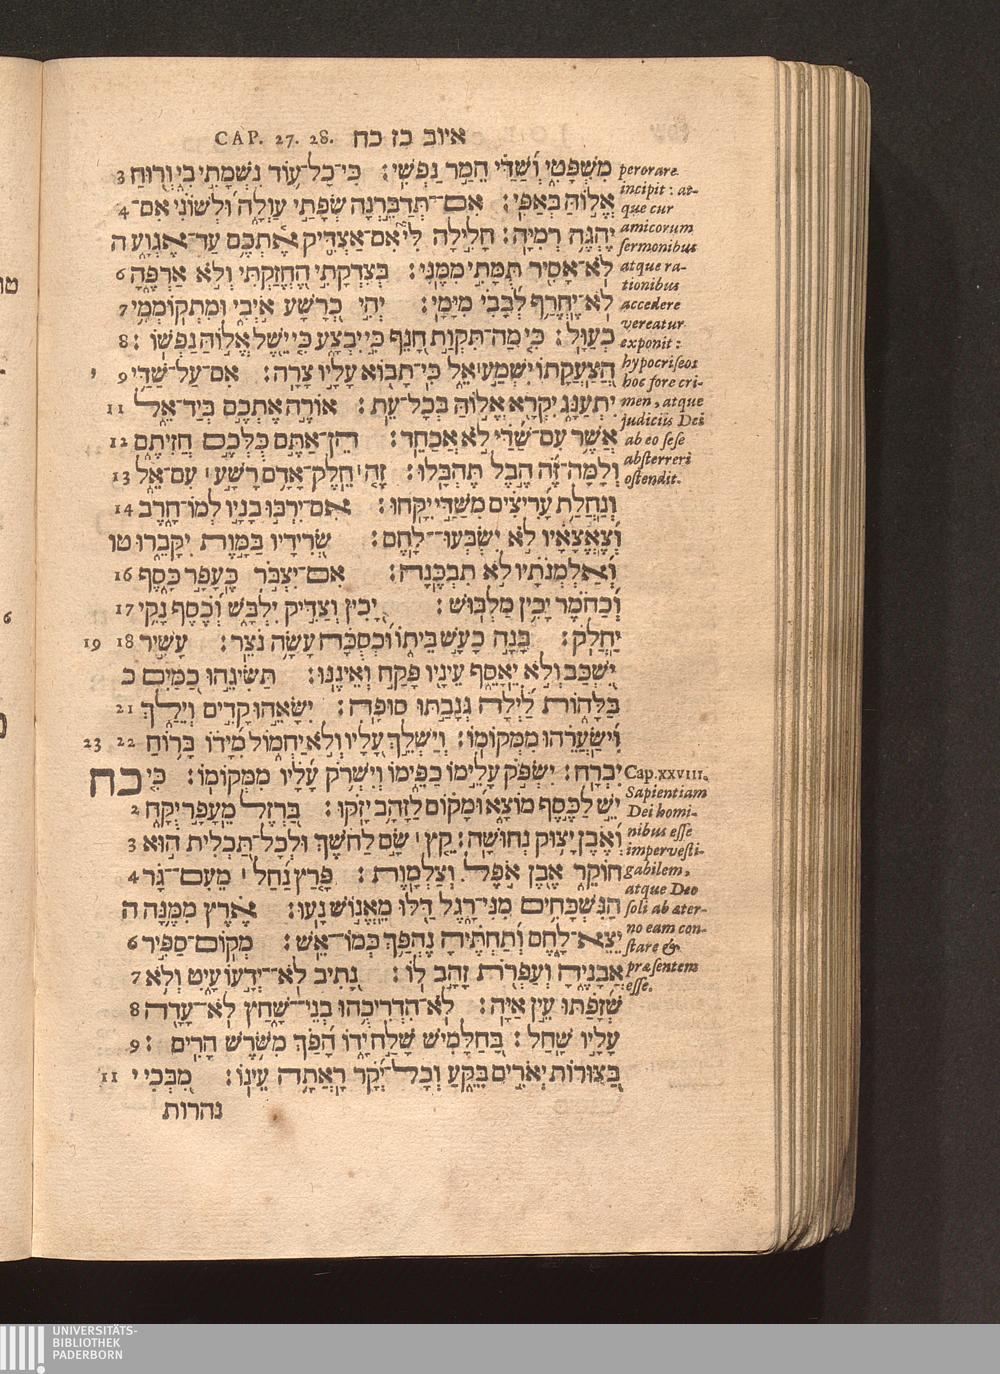 CAP. 27. 28. איוב כז כח
מִשְׁפָּטִי וְשַׁדַּי הֵמַר נַפְשִׁי: כִּי־כָל־עוֹד נִשְׁמָתִי בִי וְרוּחַ 3
אֱלוֹהַּ בְּאַפִּי: אִם־תְּדַבֵּרְנָה שְׂפָתַי עַוְלָה וּלְשׁוֹנִי אִם־ 4
יֶהְגֶּה רְמִיָּה: חָלִילָה לִּי אִם־אַצְדִּיק אֶתְכֶם עַד־אֶגְוָע ה
לֹא־אָסִיר תֻּמָּתִי מִמֶּנִּי: בְּצִדְקָתִי הֶחֱזַקְתִּי וְלֹא אַרְפֶּהָ 6
לֹא־יֶחֱרַף לְבָבִי מִיָּמָי: יְהִי כְרָשָׁע אֹיְבִי וּמִתְקוֹמְמִי 7
כְעַוָּל: כִּי מַה־תִּקְוַת חָנֵף כִּי יִבְצָע כִּי יֵשֶׁל אֱלוֹהַּ נַפְשׁוֹ: 8
הֲצַעֲקָתוֹ יִשְׁמַע אֵל כִּי־תָבוֹא עָלָיו צָרָה: אִם־עַל־שַׁדַּי 9 י
יִתְעַנָּג יִקְרָא אֱלוֹהַּ בְּכָל־עֵת: אוֹרֶה אֶתְכֶם בְּיַד־אֵל 11
אֲשֶׁר עִם־שַׁדַּי לֹא אֲכַחֵד: הֵן־אַתֶּם כֻּלְּכֶם חֲזִיתֶם 12
וְלָמָּה־זֶּה הֶבֶל תֶּהְבָּלוּ: זֶה חֵלֶק־אָדָם רָשָׁע עִם־אֵל 13
וְנַחֲלַת עָרִיצִים מִשַּׁדַּי יִקָּחוּ: אִם־יִרְבּוּ בָנָיו לְמוֹ־חָרֶב 14
וְצֶאֱצָאָיו לֹא יִשְׂבְּעוּ־לָחֶם: שְׂרִידָיו בַּמָּוֶת יִקָּבֵרוּ טו
וְאַלְמְנֹתָיו לֹא תִבְכֶּנָה: אִם־יִצְבֹּר כֶּעָפָר כָּסֶף 16
וְכַחֹמֶר יָכִין מַלְבּוּשׁ: יָכִין וְצַדִּיק יִלְבָּשׁ וְכֶסֶף נָקִי 17
יַחֲלֹק: בָּנָה כָעָשׁ בֵּיתוֹ וּכְסֻכָּה עָשָׂה נֹצֵר: עָשִׁיר 18 19
יִשְׁכַּב וְלֹא יֵאָסֵף עֵינָיו פָּקַח וְאֵינֶנּוּ: תַּשִּׂיגֵהוּ כַמַּיִם כ
בַּלָּהוֹת לַיְלָה גְּנָבַתּוּ סוּפָה: יִשָּׂאֵהוּ קָדִים וְיֵלַךְ 21
וִישָׂעֲרֵהוּ מִמְּקוֹמוֹ: וְיַשְׁלֵךְ עָלָיו וְלֹא יַחְמוֹל מִיָּדוֹ בָּרוֹחַ 22 23
יִבְרָח: יִשְׂפֹּק עָלֵימוֹ כַפֵּימוֹ וְיִשְׁרֹק עָלָיו מִמְּקוֹמוֹ: כִּי כח
יֵשׁ לַכֶּסֶף מוֹצָא וּמָקוֹם לַזָּהָב יָזֹקּוּ: בַּרְזֶל מֵעָפָר יֻקָּח 2
וְאֶבֶן יָצוּק נְחוּשָׁה: קֵץ שָׂם לַחֹשֶׁךְ וּלְכָל־תַּכְלִית הוּא 3
חוֹקֵר אֶבֶן אֹפֶל וְצַלְמָוֶת: פָּרַץ נַחַל מֵעִם־גָּר 4
הַנִּשְׁכָּחִים מִנִּי־רָגֶל דַּלּוּ מֵאֱנוֹשׁ נָעוּ: אֶרֶץ מִמֶּנָּה ה
יֵצֵא־לָחֶם וְתַחְתֶּיהָ נֶהְפַּךְ כְּמוֹ־אֵשׁ: מְקוֹם־סַפִּיר 6
אֲבָנֶיהָ וְעַפְרֹת זָהָב לוֹ: נָתִיב לֹא־יְדָעוֹ עָיִט וְלֹא 7
שְׁזָפַתּוּ עֵין אַיָּה: לֹא־הִדְרִיכֻהוּ בְנֵי־שָׁחַץ לֹא־עָדָה 8
עָלָיו שָׁחַל: בַּחַלָּמִישׁ שָׁלַח יָדוֹ הָפַךְ מִשֹּׁרֶשׁ הָרִים: 9
בַּצּוּרוֹת יְאֹרִים בִּקֵּעַ וְכָל־יְקָר רָאֲתָה עֵינוֹ: מִבְּכִי י 11
נהרות
perorare
incipit: at-
que cur
amicorum
sermonibus
atque ra-
tionibus
accedere
vereatur
exponit:
hypocriseos
hoc fore cri-
men, atque
judiciis Dei
ab eo sese
absterreri
ostendit.
Cap. XXVIII.
Sapientiam
Dei homi-
nibus esse
impervesti-
gabilem,
atque Deo
soli ab æter-
no eam con-
stare &
præsentem
esse.
UNIVERSITÄTS-
BIBLIOTHEK
PADERBORN